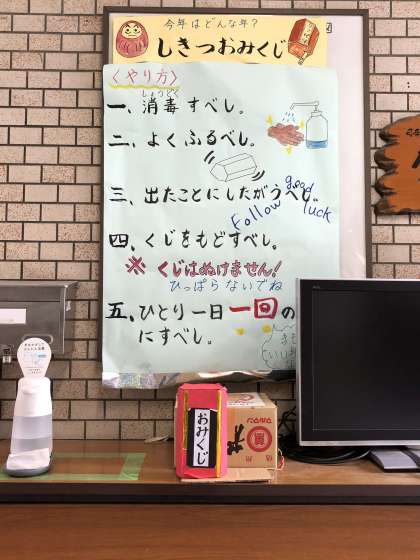 今年はどんな年?
しきつおみくじ
〈やり方〉
しょうどく
一、消毒すべし。
二、よくふるべし。
三、出たことにしたがうべし。
Follow good luck
四、くじをもどすべし。
※くじはぬけません!
ひっぱらないでね
五、ひとり一日一回の
にすべし。
おみくじ